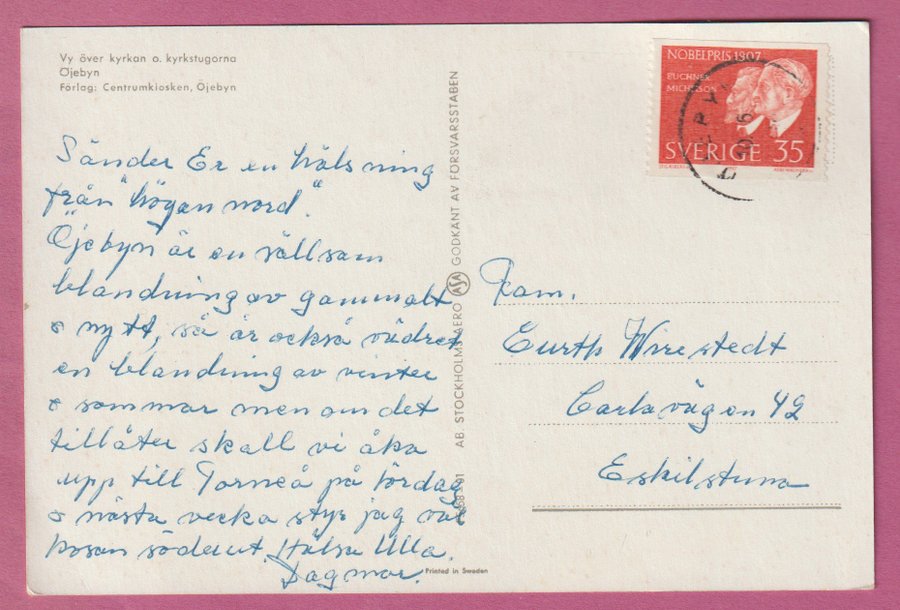 Vy över kyrkan o. kyrkstugorna
Öjebyn
Förlag: Centrumkiosken, Öjebyn
Sänder Er en hälsning
från "högan nord".
Öjebyn är en sällsam
blandning av gammalt
o nytt, så är också vädret
en blandning av vinter
o sommar men om det
tillåter skall vi åka
upp till Torneå på lördag
o nästa vecka styr jag väl
kosan söderut. Hälsa Ulla.
Dagmar.
AB. STOCKHOLMS AERO ASA GODKÄNT AV FÖRSVARSSTABEN
Printed in Sweden
NOBELPRIS 1907
BUCHNER
MICHELSON
SVERIGE 35
Fam.
Curth Wirestedt
Carlavägen 42
Eskilstuna